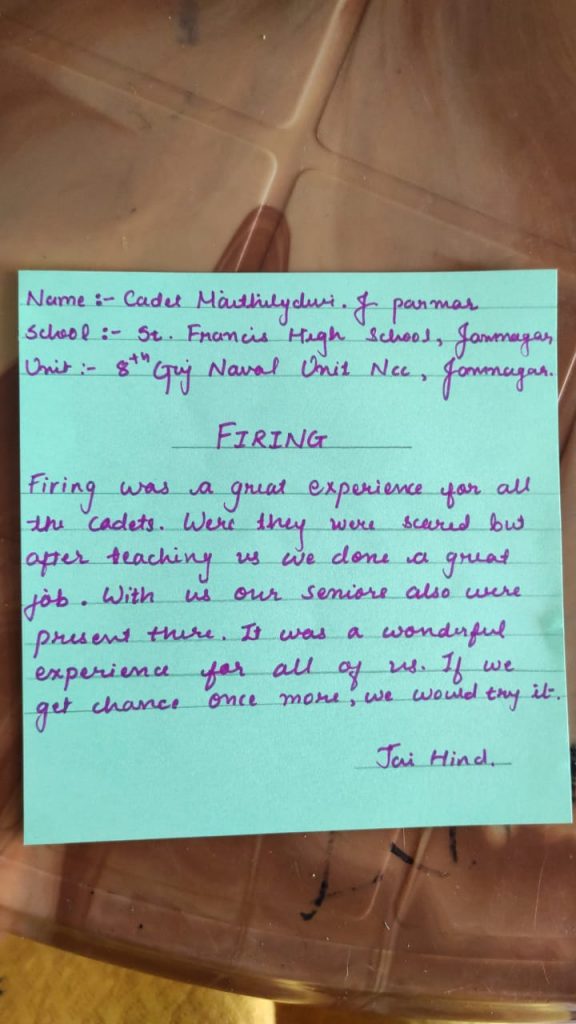 Name :- Cadet Maithilydevi. J parmar
School :- St. Francis High School, Jamnagar
Unit :- 8th Guj Naval Unit Ncc, Jamnagar.
FIRING
Firing was a great experience for all
the cadets. Were they were scared but
after teaching us we done a great
job. With us our seniors also were
present there. It was a wonderful
experience for all of us. If we
get chance once more, we would try it.
Jai Hind.